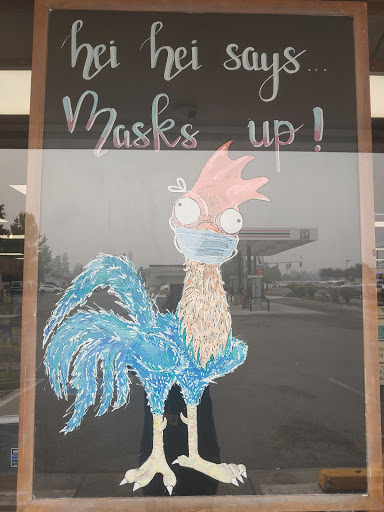 hei hei says...
Masks up!